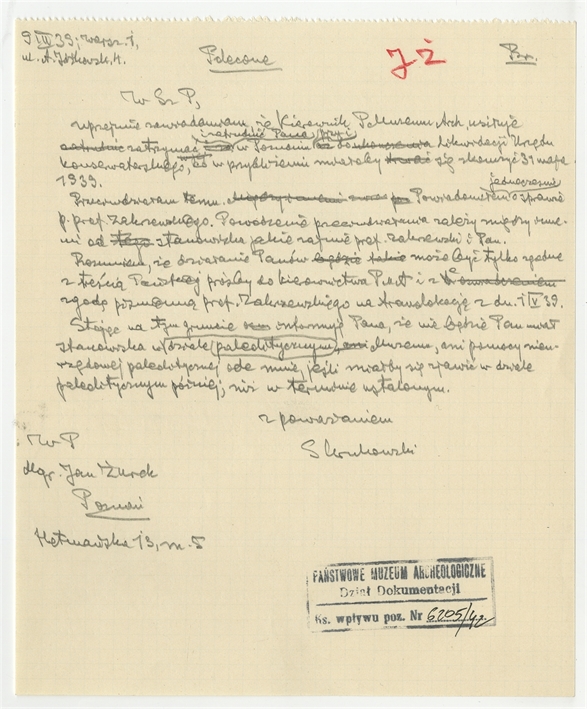 9 III 39; Warsz. 1,
ul. A. 4.
Polecone
JŻ
Br.
W Sz P,
Uprzejmie zawiadamiam, że Kierownik P. Muzeum Arch. usiłuje
zatrudnić Pana przy
zatrzymać w Poznaniu likwidacji Urzędu
Konserwatorskiego, co w przybliżeniu miałoby się skończyć 31 maja
1939.
jednocześnie
Przeciwdziałam temu. Powiadomiłem o sprawie
p. prof. Zakrzewskiego. Powodzenie przeciwdziałania zależy między inne-
mi od stanowiska jakie zajmie prof. Zakrzewski i Pan.
Rozumiem, że działanie Panów będzie może być tylko zgodne
z treścią Pańskiej prośby do kierownictwa PMA i z
zgodą piśmienną prof. Zakrzewskiego na translokację z dn. 1 V 39.
Stojąc na tym gruncie informuję Pana, że nie będzie Pan miał
stanowiska w dziale paleolitycznym, Muzeum, ani pomocy nieu-
rzędowej paleolitycznej ode mnie, jeśli miałby się zjawić w dziale
paleolitycznym później, niż w terminie ustalonym.
z poważaniem
S Krukowski
W P
Mgr. Jan Żurek
Poznań
Hetmańska 13, m. 5
PAŃSTWOWE MUZEUM ARCHEOLOGICZNE
Dział Dokumentacji
Ks. wpływu poz. Nr 6205/42